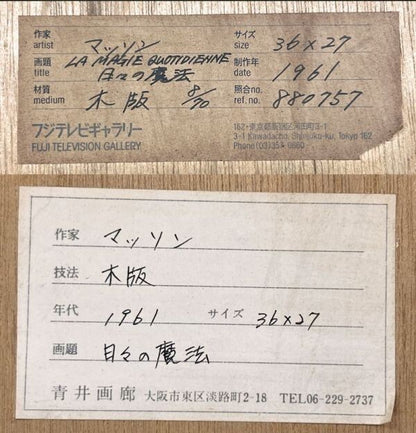 作家 artist マッソン サイズ size 36×27
画題 title LA MAGIE QUOTIDIENNE 日々の魔法 制作年 date 1961
材質 medium 木版 8/70 照合No. ref. no. 880757
フジテレビギャラリー
FUJI TELEVISION GALLERY
162・東京都新宿区河田町3-1
3-1 Kawadacho, Shinjuku-ku, Tokyo 162
Phone (03)
作家 マッソン
技法 木版
年代 1961 サイズ 36×27
画題 日々の魔法
青井画廊 大阪市東区淡路町2-18 TEL06-229-2737